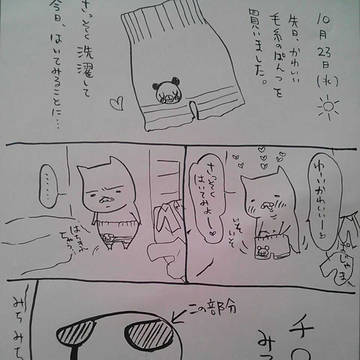 10月23日(水)
先日、かわいい
毛糸のぱんつを
買いました。
さっそく洗濯して
今日、はいてみることに…
ゆいかわいいーっ
さっそく
はいてみよーっ
いそいそ
……
はちきれ
この部分
みちみち